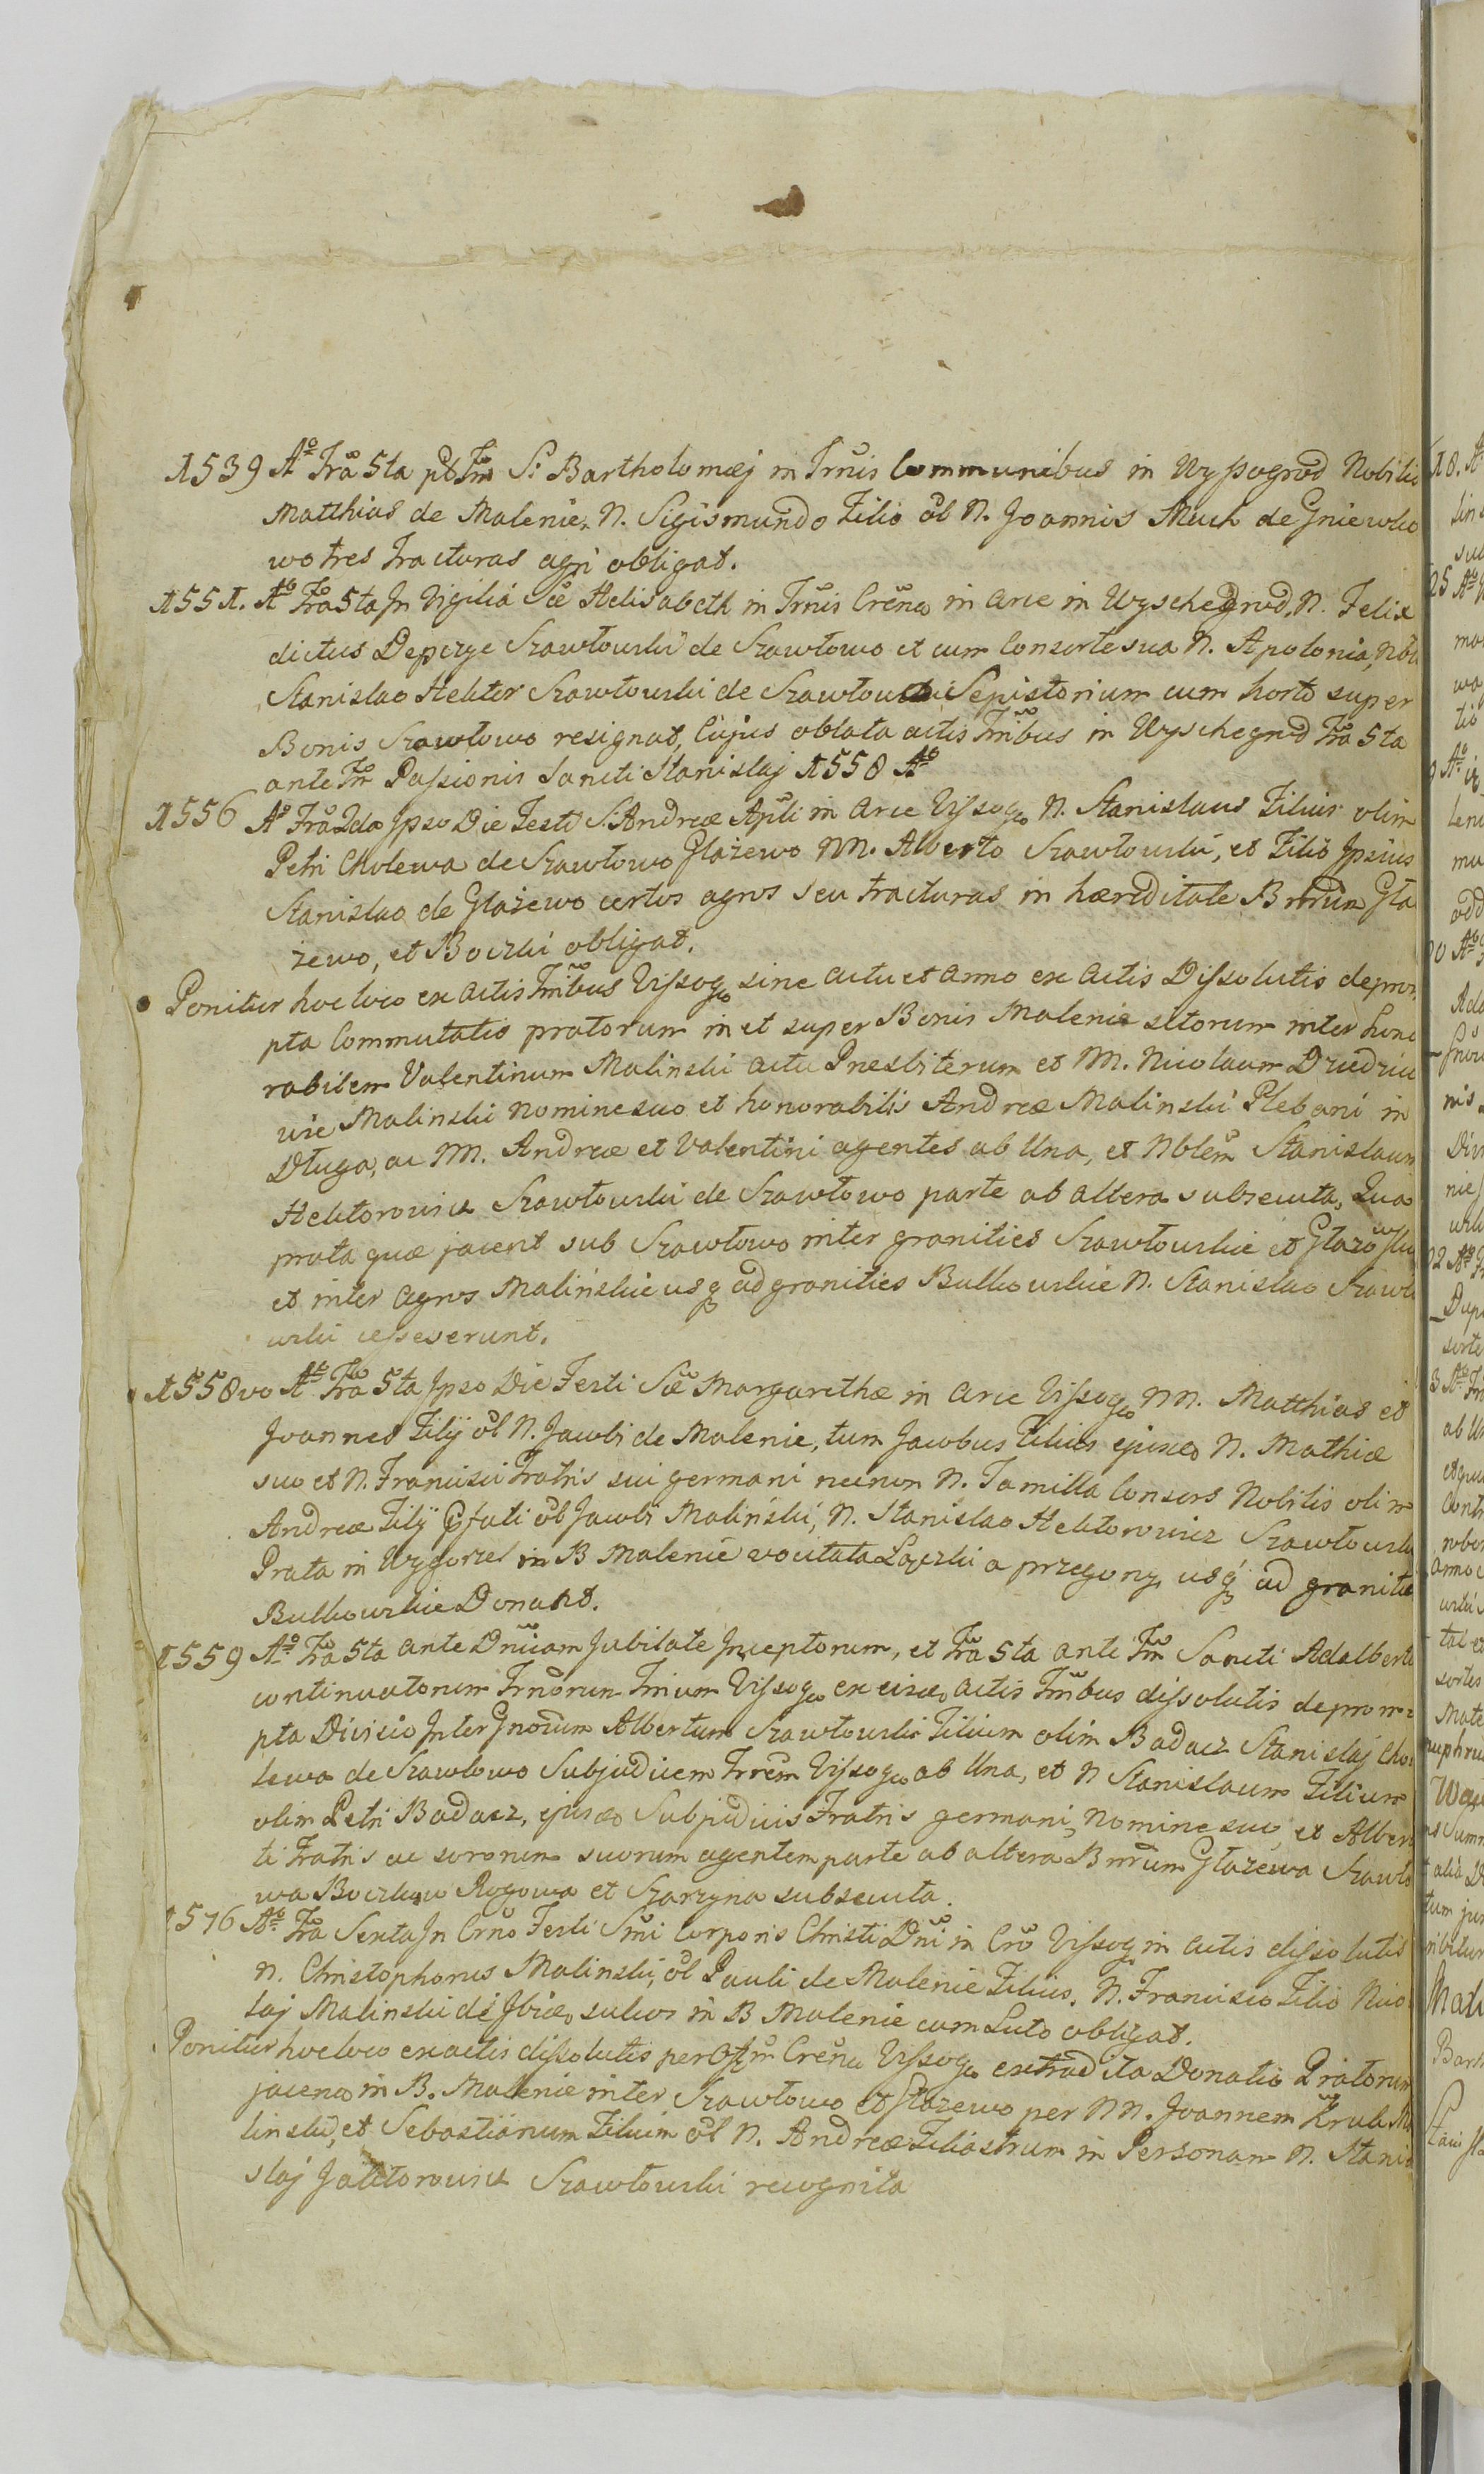 1539 Aõ Fra 5ta pot Fm S: Bartholomæj in Trnis Communibus in Wyssogrod Nobilis
Matthias de Malenie, N. Sigismundo Filio ol N. Joannis Much de Gniewko
wo tres tracturas agri obligat.
1551. Ao Fra 5ta In Vigilia Sæ Helisabeth in Trnis Crena in arce in Wyschegrod, N. Felix
dictus Depczye Szawłowski de Szawłowo et cum Consorte sua N. Apolonia, Nbli
Stanislao Hektor Szawłowski de Szawłowo Sepistorium cum horto super
Bonis Szawłowo resignat, Cujus oblata actis Trribus in Wyschegrod Fra 5ta
ante Fm Passionis Sancti Stanislaj 1558 Ao
1556 Ao Fra 2da Ipso Die Festi S: Andreæ Apli in Arce Vissog N. Stanislaus Filius olim
Petri Cholewa de Szawłowo Głażewo NN. Alberto Szawłowski, et Filio Ipsius
Stanislao de Głażewo certos agros seu tracturas in hæreditate Bnrum Gła
żewo, et Boczki obligat.
Ponitur hoc loco ex actis Trribus Vissog sine actu et anno ex actis Dissolutis depro
pta Commutatio pratorum in et super Bonis Malenie sitorum inter hono
rabilem Valentinum Malinski actu Presbiterum et NN. Nicolaum Dziedzic
vie Malinski nomine suo et honorabilis Andreæ Malinski Plebani in
Długa, ac NN. Andreæ et Valentini agentes ab Una, et Nblem Stanislaum
Hektorowicz Szawłowski de Szawłowo parte ab altera subsecuta, Qua
prata quæ jacent sub Szawłowo inter granities Szawłowskie et Głazowskie
et inter agros Malińskie usq ad granities Bulkowskie N. Stanislao Szawło
wski cesseverunt.
1558vo Ao Fra 5ta Ipso Die Festi Sæ Margarethæ in arce Vissog NN. Matthias et
Joannes Filij ol N. Jacobi de Malenie, tum Jacobus Filius ejusd N. Mathiæ
suo et N. Francisci Fratris sui germani necnon N. Familla Consors Nobilis olim
Andreæ Filij pfati ol Jacobi Maliński, N. Stanislao Hektorowicz Szawłowski
Prata in Wygorzel in B Malenie vocitata Łączki a przegony usq ad granitie
Bulkowskie Donant.
1559 Ao Fra 5ta ante Dnicam Jubilate Inceptorum, et Fra 5ta ante Fm Sancti Adalberti
continuatorum Trnorum Trrium Vissog ex eisd actis Trribus dissolutis deprom=
pta Divisio Inter Gnosum Albertum Szawłowski Filium olim Badacz Stanislaj Cho
lewa de Szawłowo Subjudicem Trrem Vissog ab Una, et N Stanislaum Filium
olim Petri Badacz, ejusd Subjudicis Fratris germani, nomine suo, et Alber
ti Fratris ac sororum suorum agentem parte ab altera Bnrum Głażewa Szawło
wa Boczkow Rogowa et Szarzyna subsecuta.
1576 Ao Fra Sexta In Crno Festi Smi Corporis Christi Dni in Cro Vissog in actis dissolutis
N. Christophorus Malinski, ol Pauli de Malenie Filius, N. Francisco Filio Nico
laj Malinski de Ibid, sulcos in B Malenie cum Luto obligat.
Ponitur hoc loco ex actis dissolutis per Offm Crena Vissog extradita Donatio Pratorum
jacen in B. Malenie inter Szawłowo et Głazewo per NN. Joannem Krul Ma
linski, et Sebastianum Filium ol N. Andreæ Filiastrum in Personam N. Stanis
slaj Jaktorowicz Szawłowski recognita